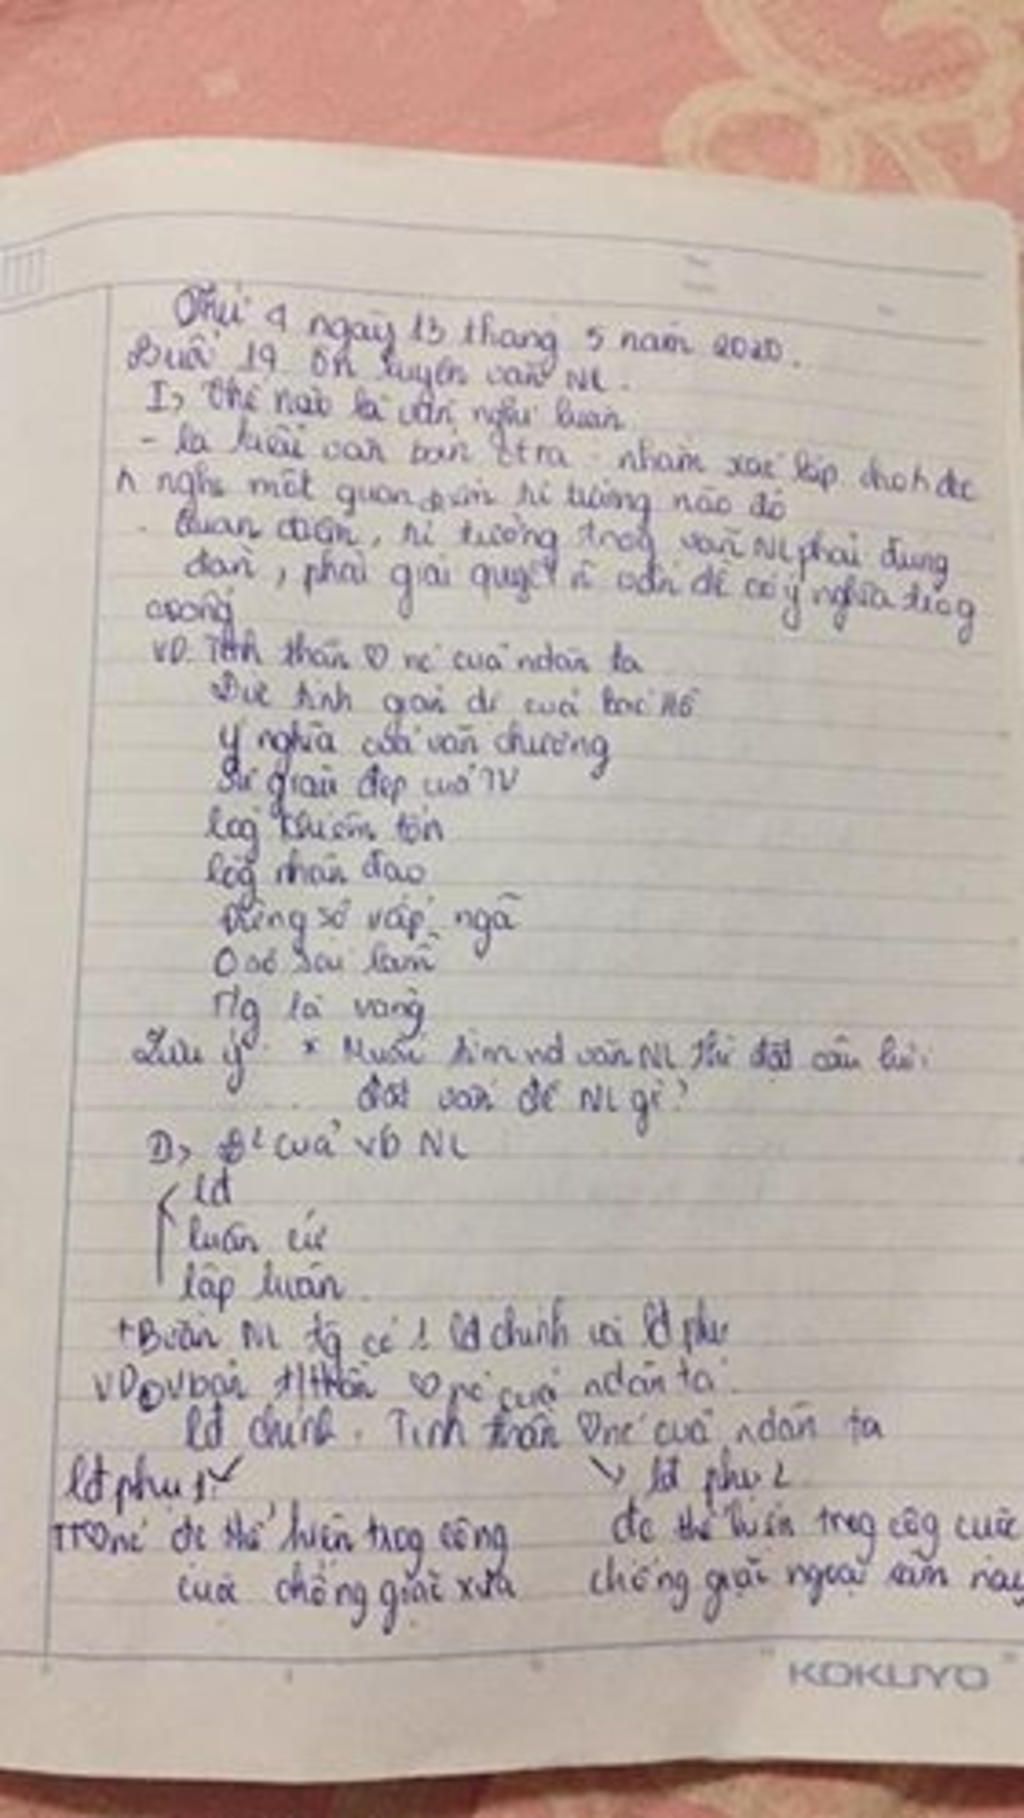 Thứ 4 ngày 13 tháng 5 năm 2020.
Buổi 19 ôn luyện văn NL.
I> Thế nào là văn nghị luận
- là kiểu văn bản nhằm xác lập cho
nghe một quan điểm tư tưởng nào đó
- Quan điểm, tư tưởng trog văn NL phải đúng
đắn, phải giải quyết vấn đề có ý nghĩa trog
csong
VD. Tinh thần ♡ nc của ndân ta
Đức tính giản dị của Bác Hồ
Ý nghĩa của văn chương
Sự giàu đẹp của TV
log khiêm tốn
lòg nhân đạo
Đừng sợ vấp ngã
sai lầm
T/g là vàng
Lưu ý * Muốn tìm nd văn NL thì đặt câu hỏi
đặt vấn đề NL gì?
của vb NL
lđ
luận cứ
lập luận.
NL tg có 1 lđ chính và lđ phụ
VD vbản t/thần ♡ nc của ndân ta
lđ chính. Tinh thần ♡ nc của ndân ta
lđ phụ 1
TT♡nc đc thể hiện trog công
cuộc chống giặc xưa
lđ phụ 2
đc thể hiện trog côg cuộc
chống giặc ngoại xâm nay
KOKUYO